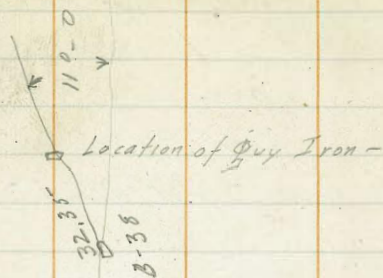 11°-0
Location of Guy Iron -
32.35
B-38